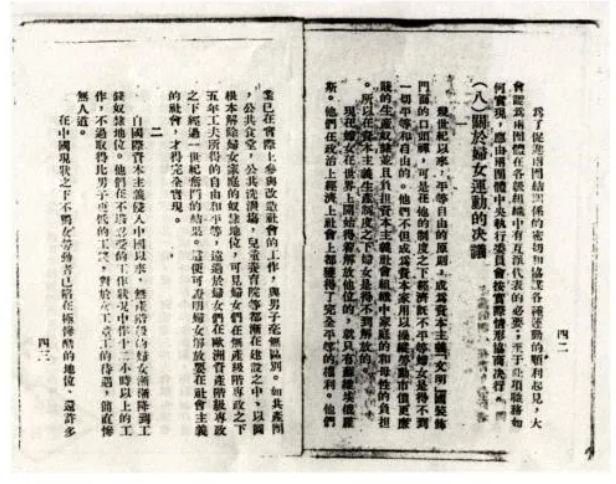 四二
爲了促進兩團結關係的密切和協謀各種運動的順利起見，大
會認爲兩團體在各級組織中有互派代表的必要；至于此項職務如
何實現，應由兩團體中央執行委員會按實際情形協商决行。
（八）關於婦女運動的决議
一
幾世紀以來，平等自由的原則，成爲資本主義「文明」國裝飾
門面的口頭禪，可是在他的制度之下經濟既不平等婦女是得不到
一切平等和自由的。他們不但成爲資本家用以操縱勞動市價更廉
賤的生產奴隸並且負担資本主義社會組織中家庭的和母性的負担
。所以在資本主義生產制度之下婦女是得不到解放的。
現在婦女在世界上開始得着解放地位的，就只有蘇維埃俄羅
斯。他們在政治上經濟上社會上都獲得了完全平等的權利。他們
業已在實際上參與改造社會的工作，與男子毫無區别。如共產團
，公共食堂，公共洗濯場，兒童養育院等都漸在建設之中，以圖
根本解除婦女家庭的奴隸地位，可見婦女們在無產級階專政之下
五年工夫所得的自由和平等，遠過於婦女們在歐洲資產階級專政
之下經過一世紀奮鬥的結果。這便可證明婦女解放要在社會主義
的社會，才得完全實現。
二
自國際資本主義侵入中國以來，無產階級的婦女漸漸降到工
錢奴隸地位。他們在不堪忍受的工作狀況中作十二小時以上的工
作，不過取得比男子更低的工資，對於女工童工的待遇，簡直慘
無人道。
在中國現狀之下不啊女勞動者已陷在極慘酷的地位、還許多
四三